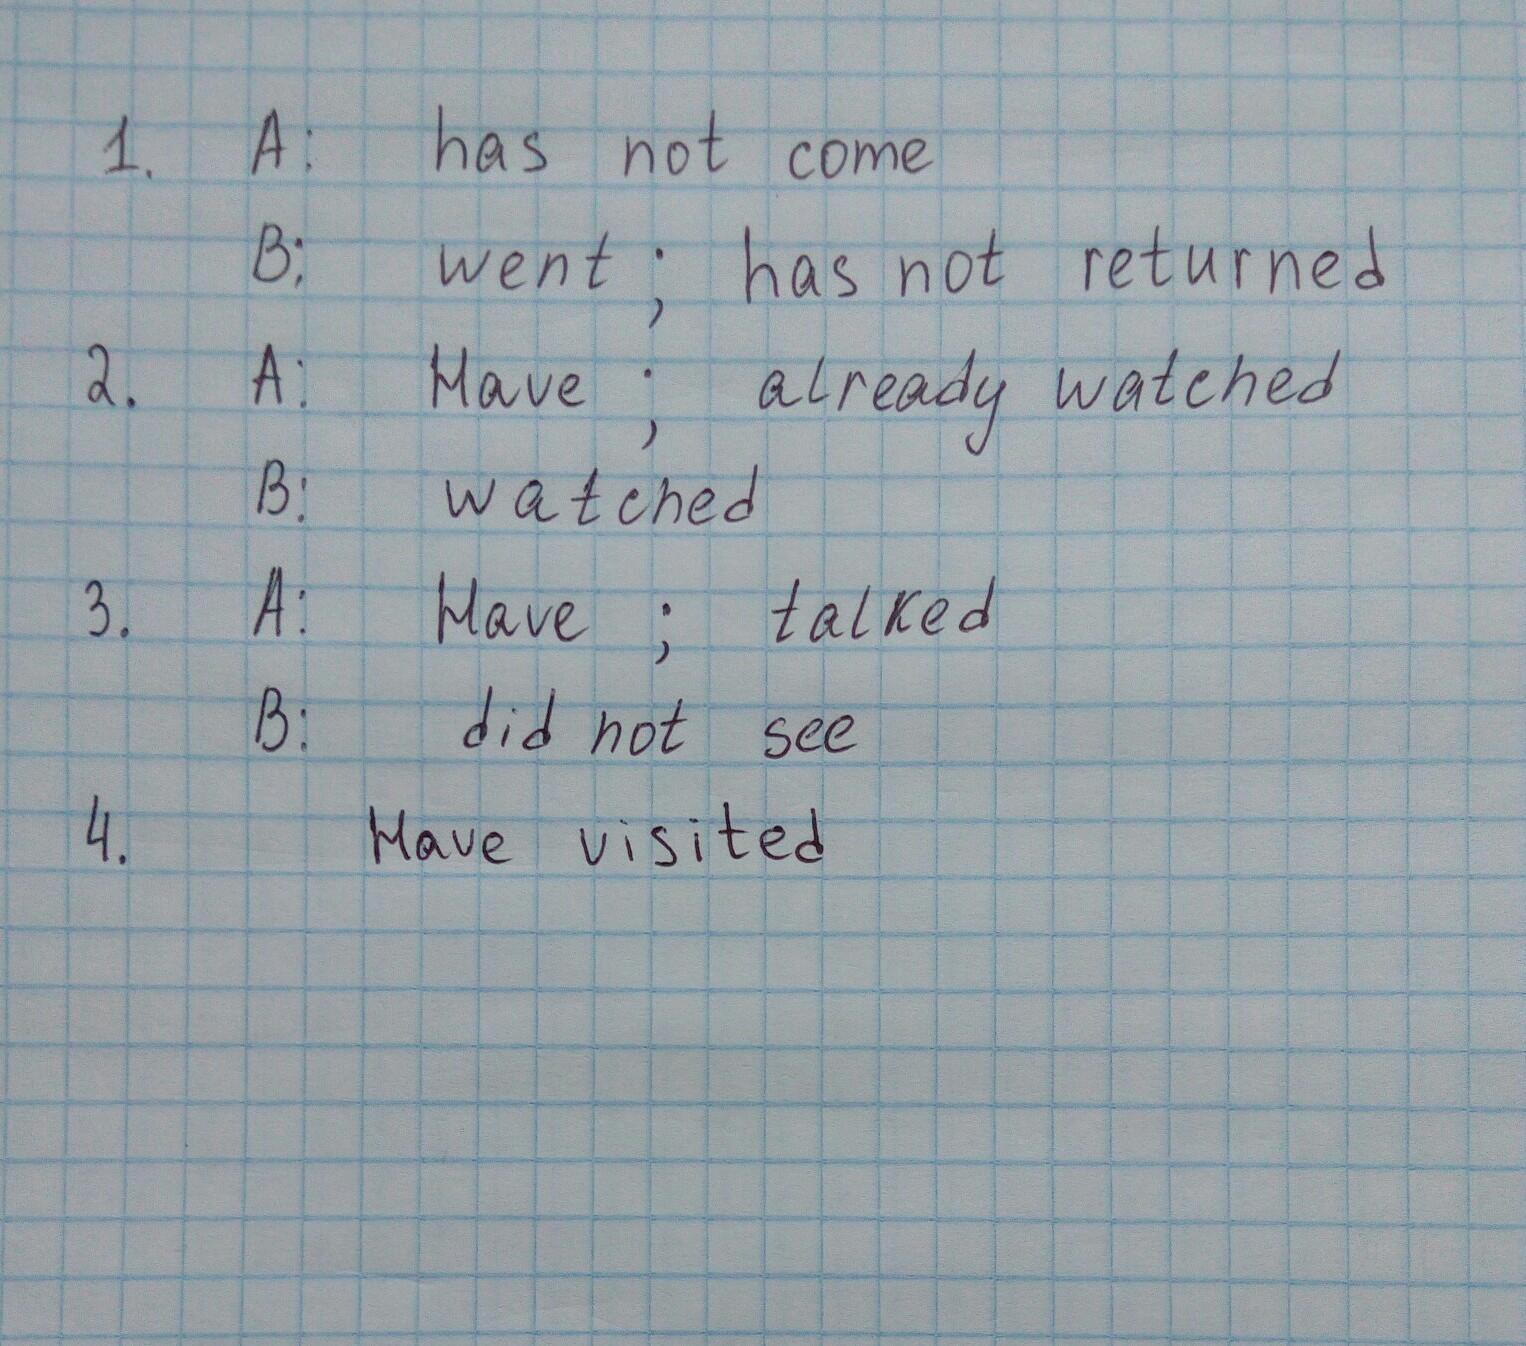 1. A: has not come
B: went; has not returned
2. A: Have; already watched
B: watched
3. A: Have; talked
B: did not see
4. Have visited